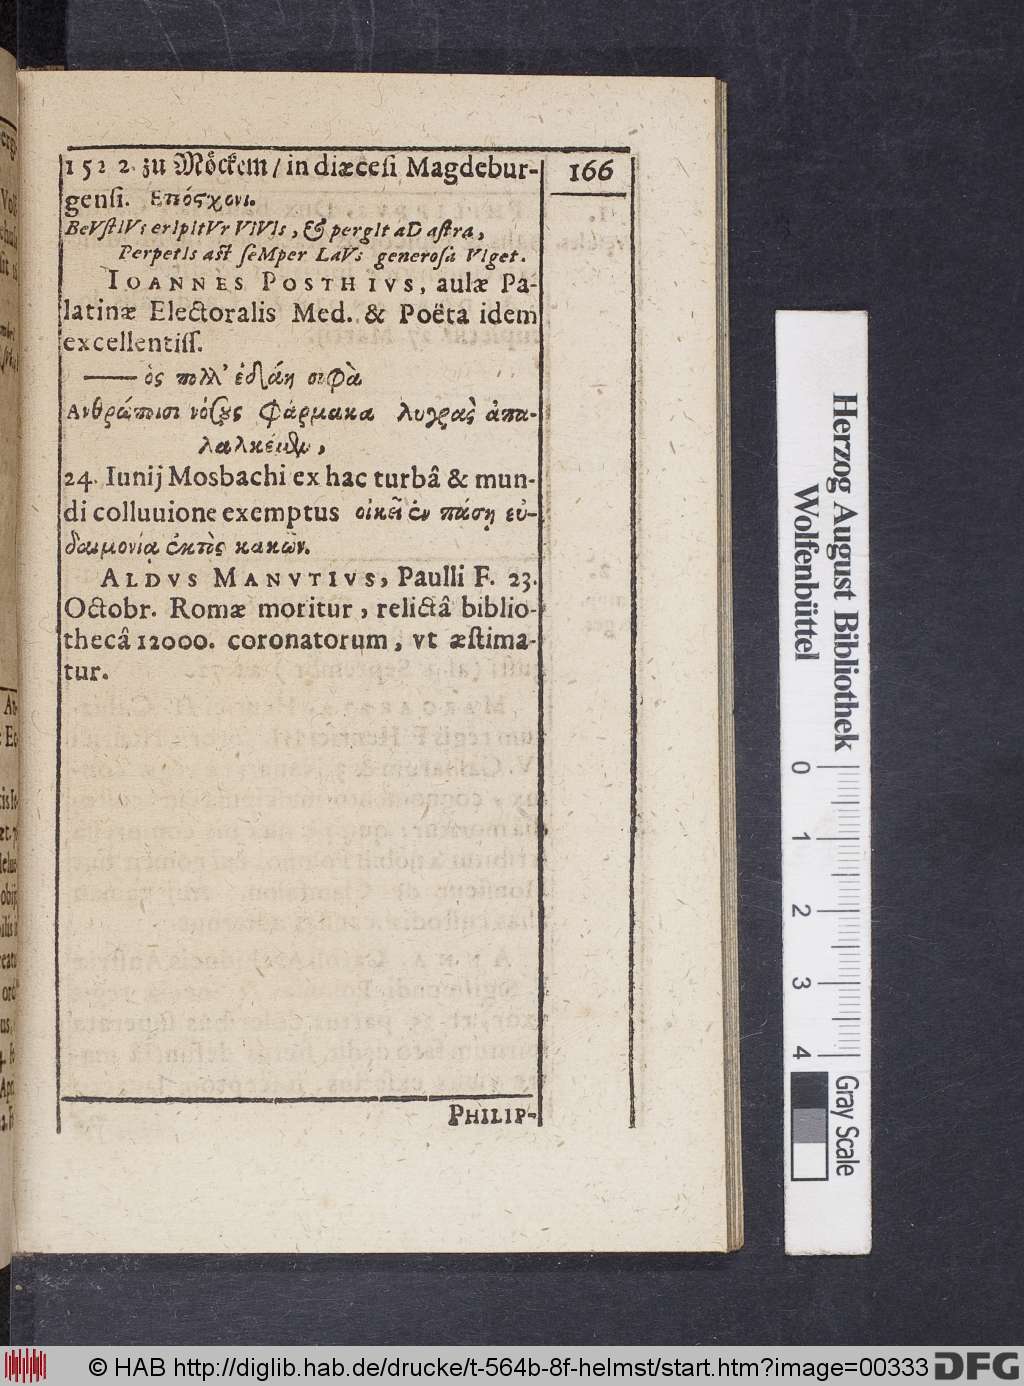 1522. zu Möckem / in diœcesi Magdebur-
166
gensi. Επόςχονι.
BeVstIVs erIpItVr VIVIs, & pergIt aD astra,
PerpetIs ast seMper LaVs generosa VIget.
IOANNES POSTHIVS, aulæ Pa-
latinæ Electoralis Med. & Poëta idem
excellentiss.
—— ὁς πολλ' ἐδιδάη σοφὰ
Ανθρώποισι νόσους φάρμακα λυγρὰς ἀπα-
λαλκέμεν,
24. Iunij Mosbachi ex hac turbâ & mun-
di colluuione exemptus οἰκεῖ ἐν πάσῃ εὐ-
δαιμονίᾳ ἐκτὸς κακῶν.
ALDVS MANVTIVS, Paulli F. 23.
Octobr. Romæ moritur, relictâ biblio-
thecâ 12000. coronatorum, vt æstima-
tur.
PHILIP-
Herzog August Bibliothek
Wolfenbüttel
0 1 2 3 4
Gray Scale
© HAB http://diglib.hab.de/drucke/t-564b-8f-helmst/start.htm?image=00333
DFG